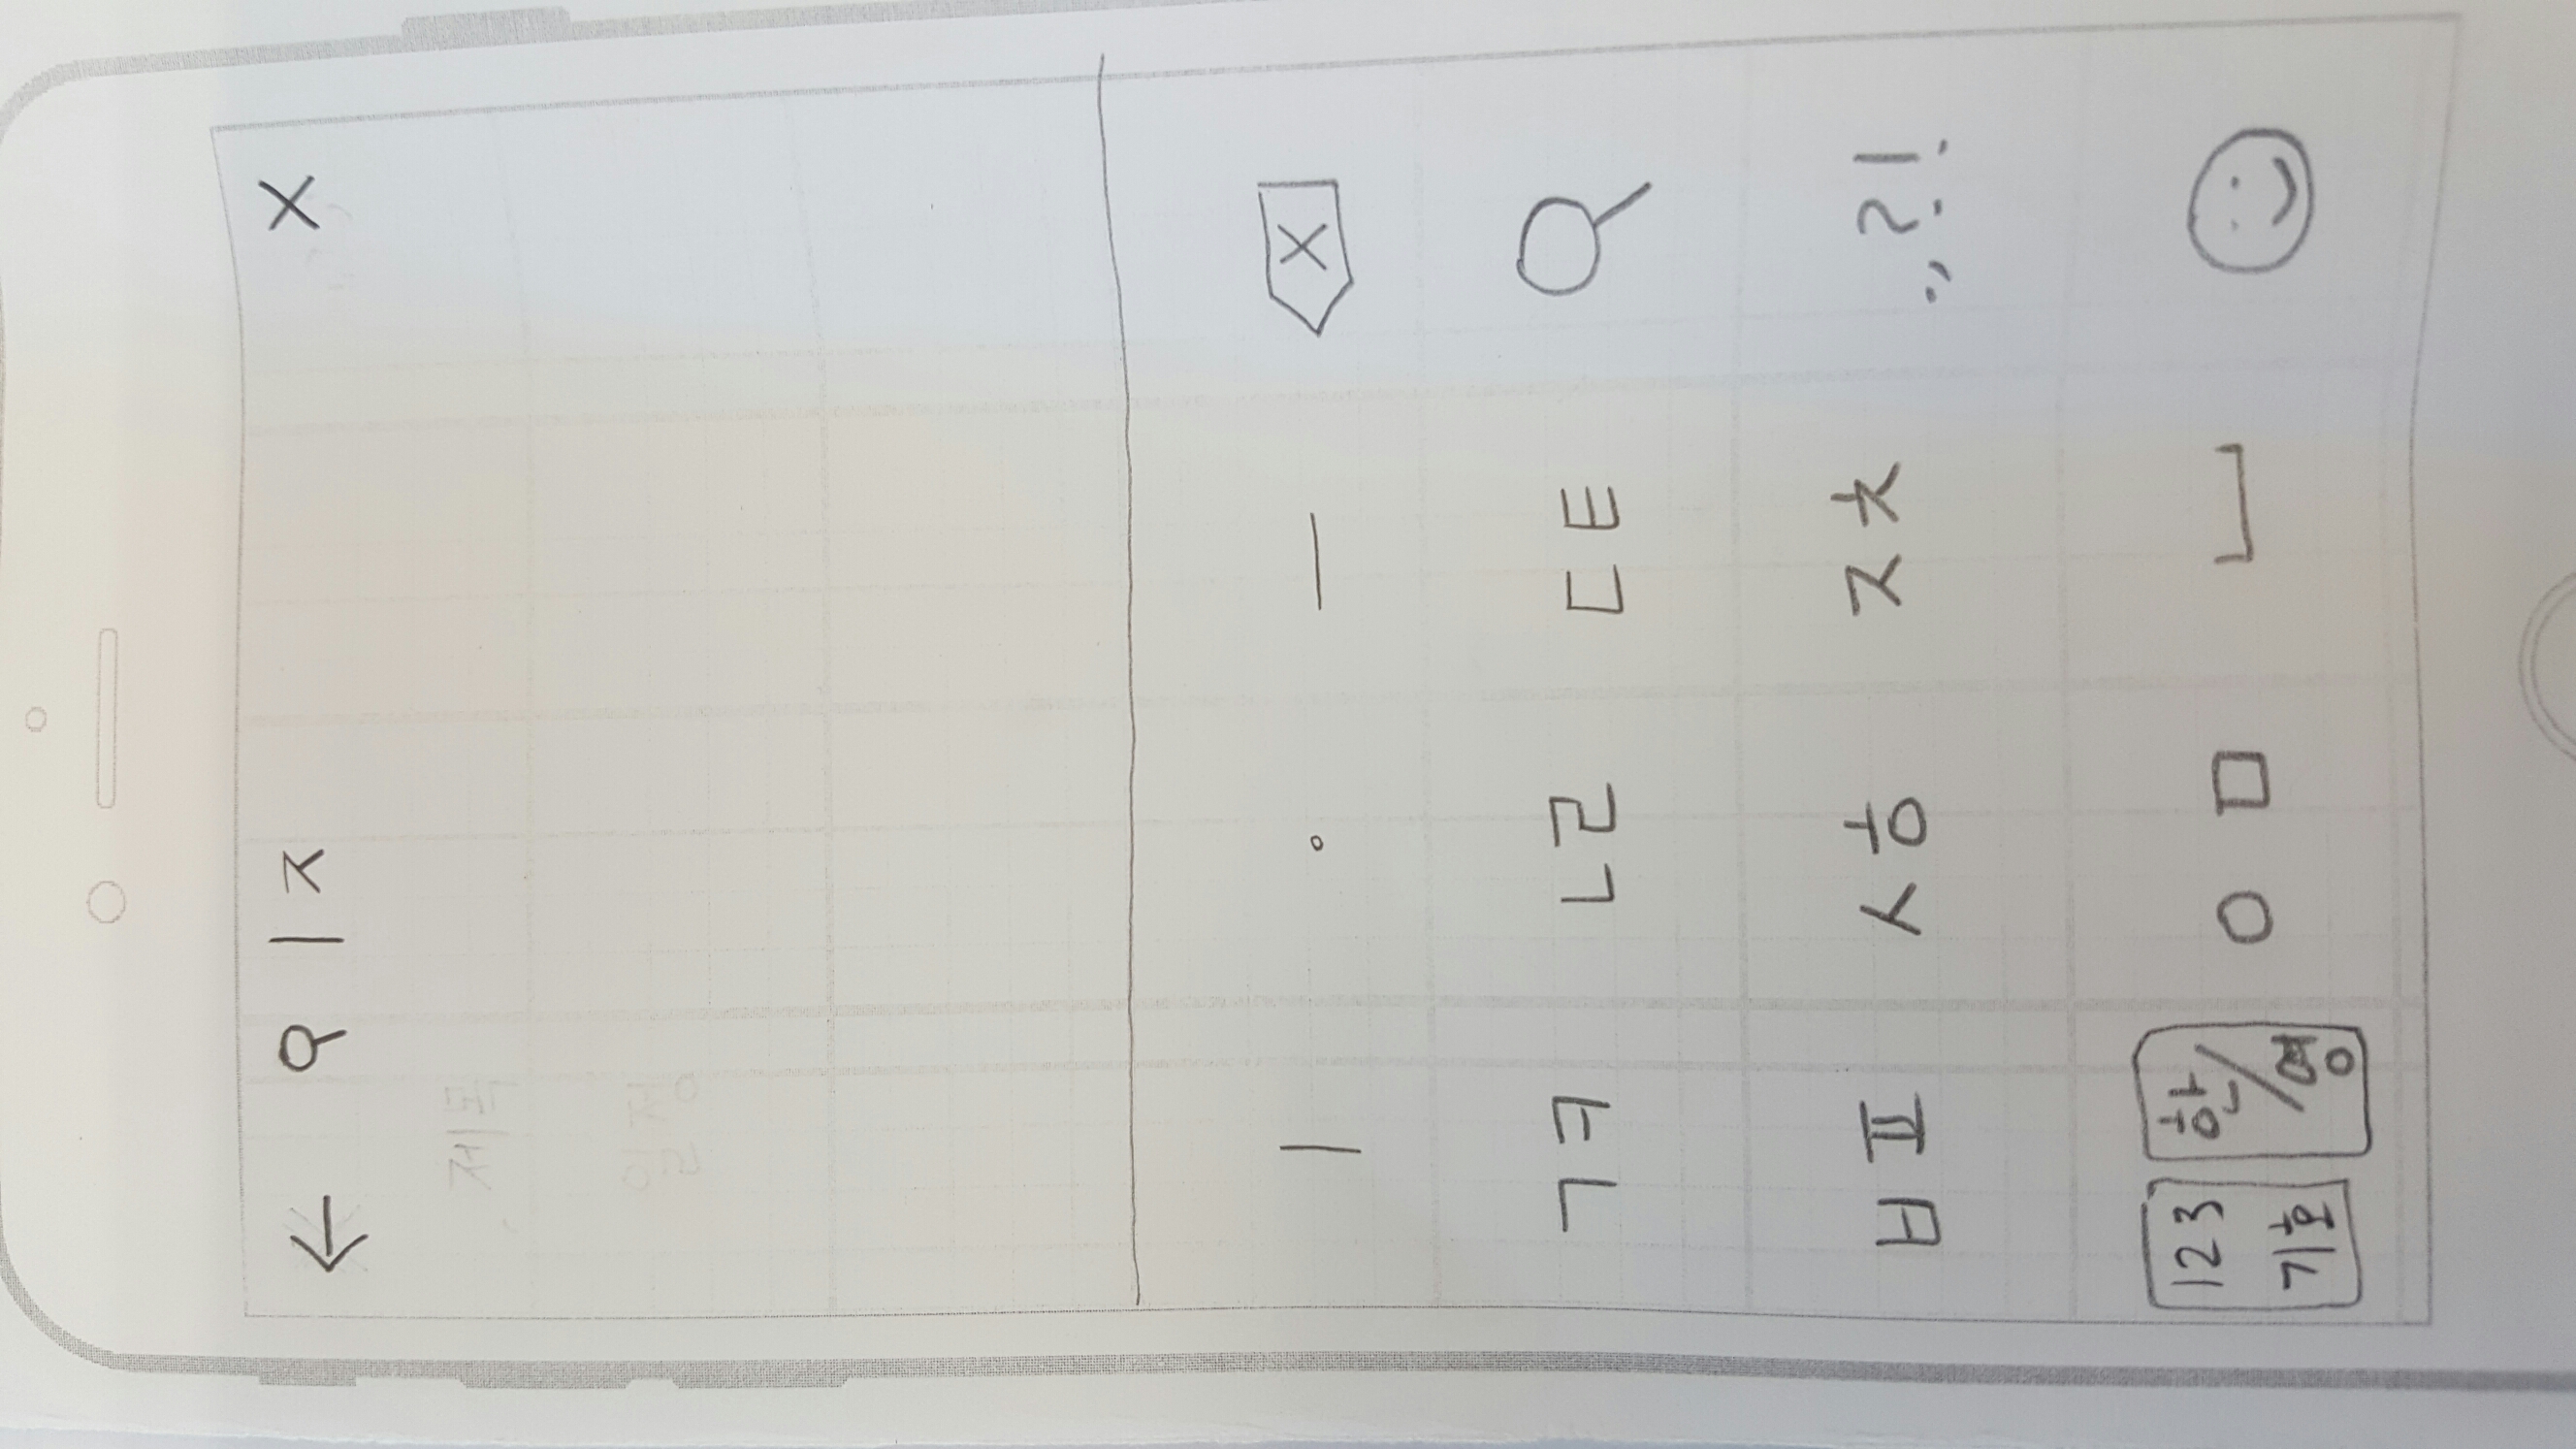 ㅣㅈ
제목
일정
ㅣ ㆍ ㅡ
ㄱㅋ ㄴㄹ ㄷㅌ
ㅂㅍ ㅅㅎ ㅈㅊ .,?!
123 한/영 ㅇㅁ
기호